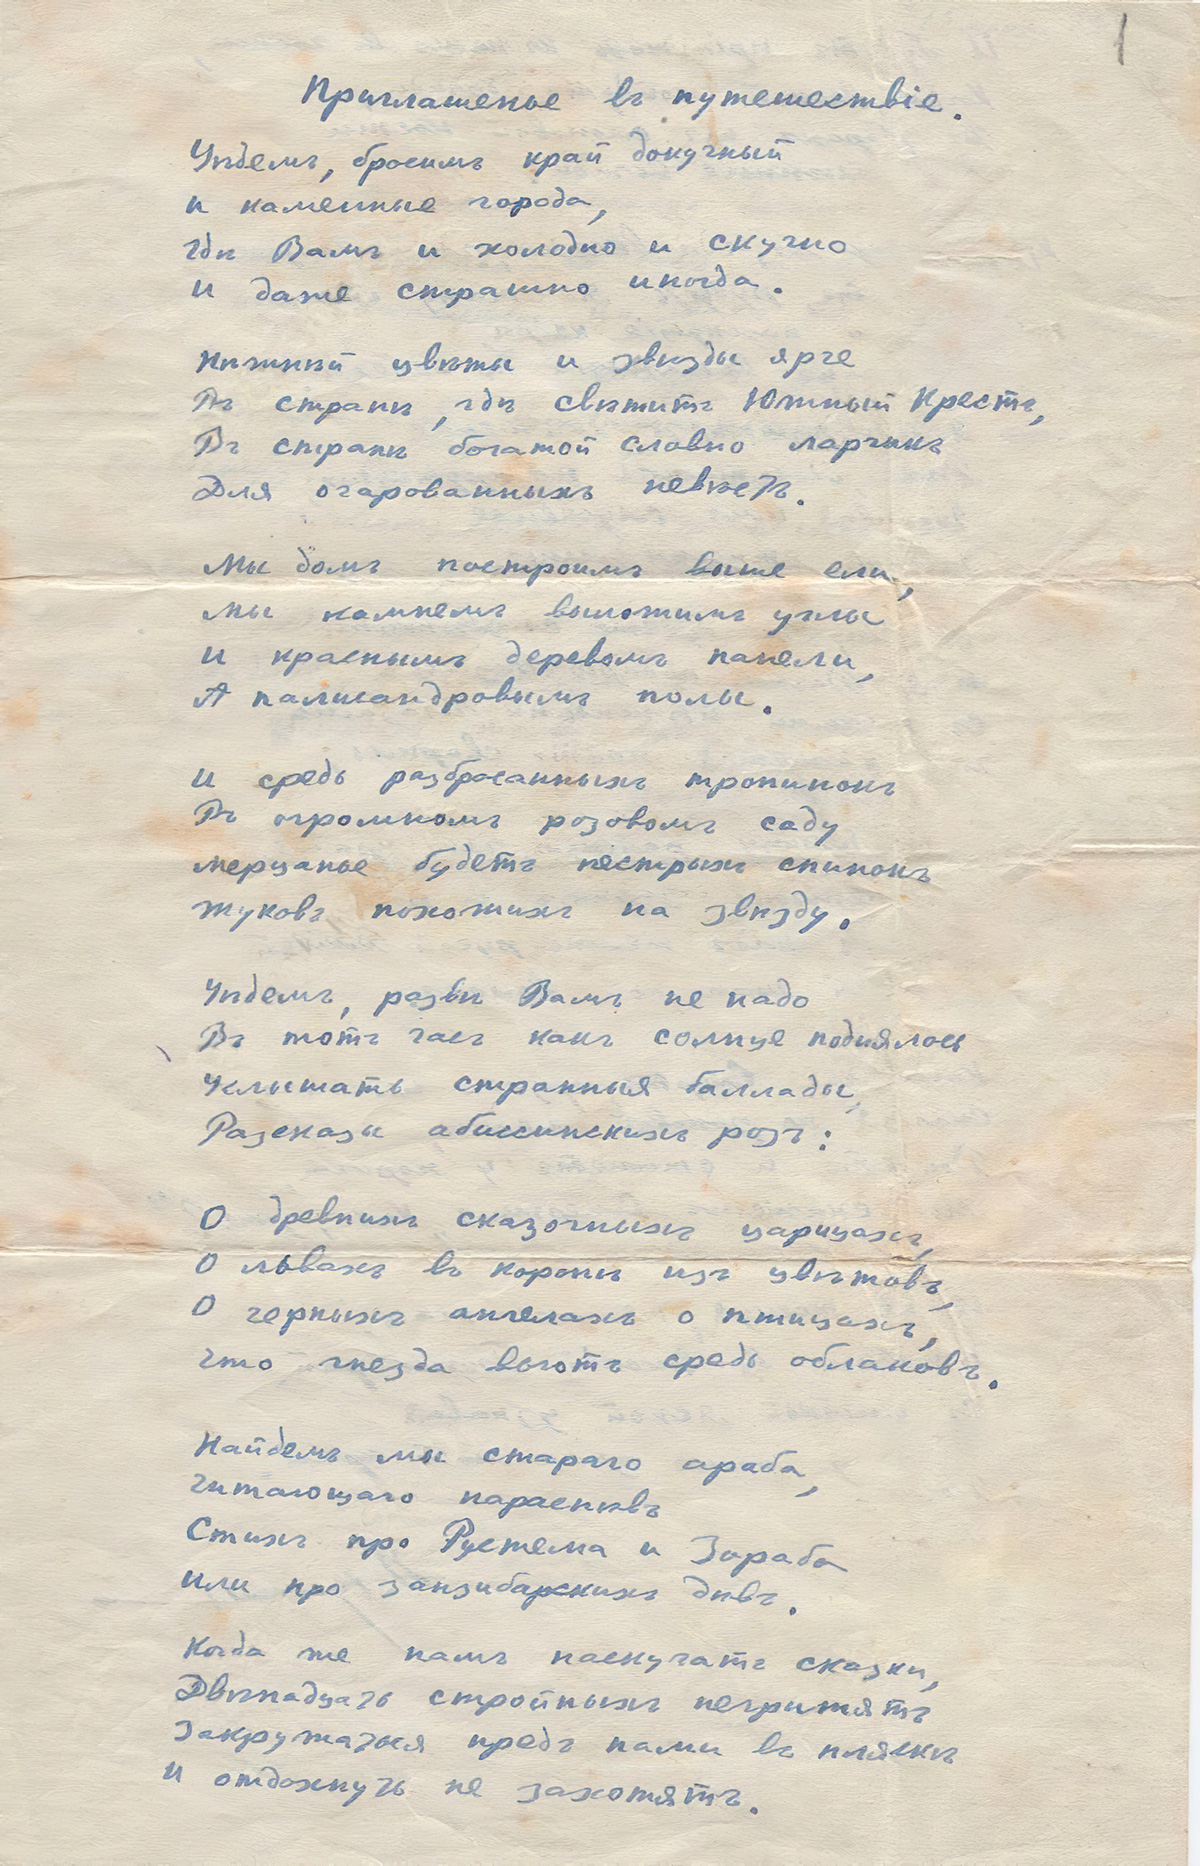 1
Приглашенье въ путешествіе.
Уѣдемъ, бросимъ край докучный
и каменные города,
гдѣ Вамъ и холодно и скучно
и даже страшно иногда.
Нѣжнѣй цвѣты и звѣзды ярче
Въ странѣ, гдѣ свѣтитъ Южный Крестъ,
Въ странѣ богатой словно ларчикъ
Для очарованныхъ невѣстъ.
Мы домъ построимъ выше ели,
мы камнемъ выложимъ углы
и краснымъ деревомъ панели,
А палисандровымъ полы.
и средь разбросанныхъ тропинокъ
Въ огромномъ розовомъ саду
мерцанье будетъ пестрыхъ спинокъ
жуковъ похожихъ на звѣзду.
Уѣдемъ, развѣ Вамъ не надо
Въ тотъ часъ какъ солнце поднялось
Услышать странныя баллады,
Разсказы абиссинскихъ розъ:
О древнихъ сказочныхъ царицахъ,
О львахъ въ коронѣ изъ цвѣтовъ,
О черныхъ ангелахъ о птицахъ,
Что гнезда вьютъ средь облаковъ.
Найдемъ мы стараго араба,
читающаго нараспѣвъ
Стихъ про Рустема и Зораба
или про занзибарскихъ дѣвъ.
Когда же намъ наскучатъ сказки,
Двѣнадцать стройныхъ негритятъ
Закружатся предъ нами въ пляскѣ
и отдохнуть не захотятъ.